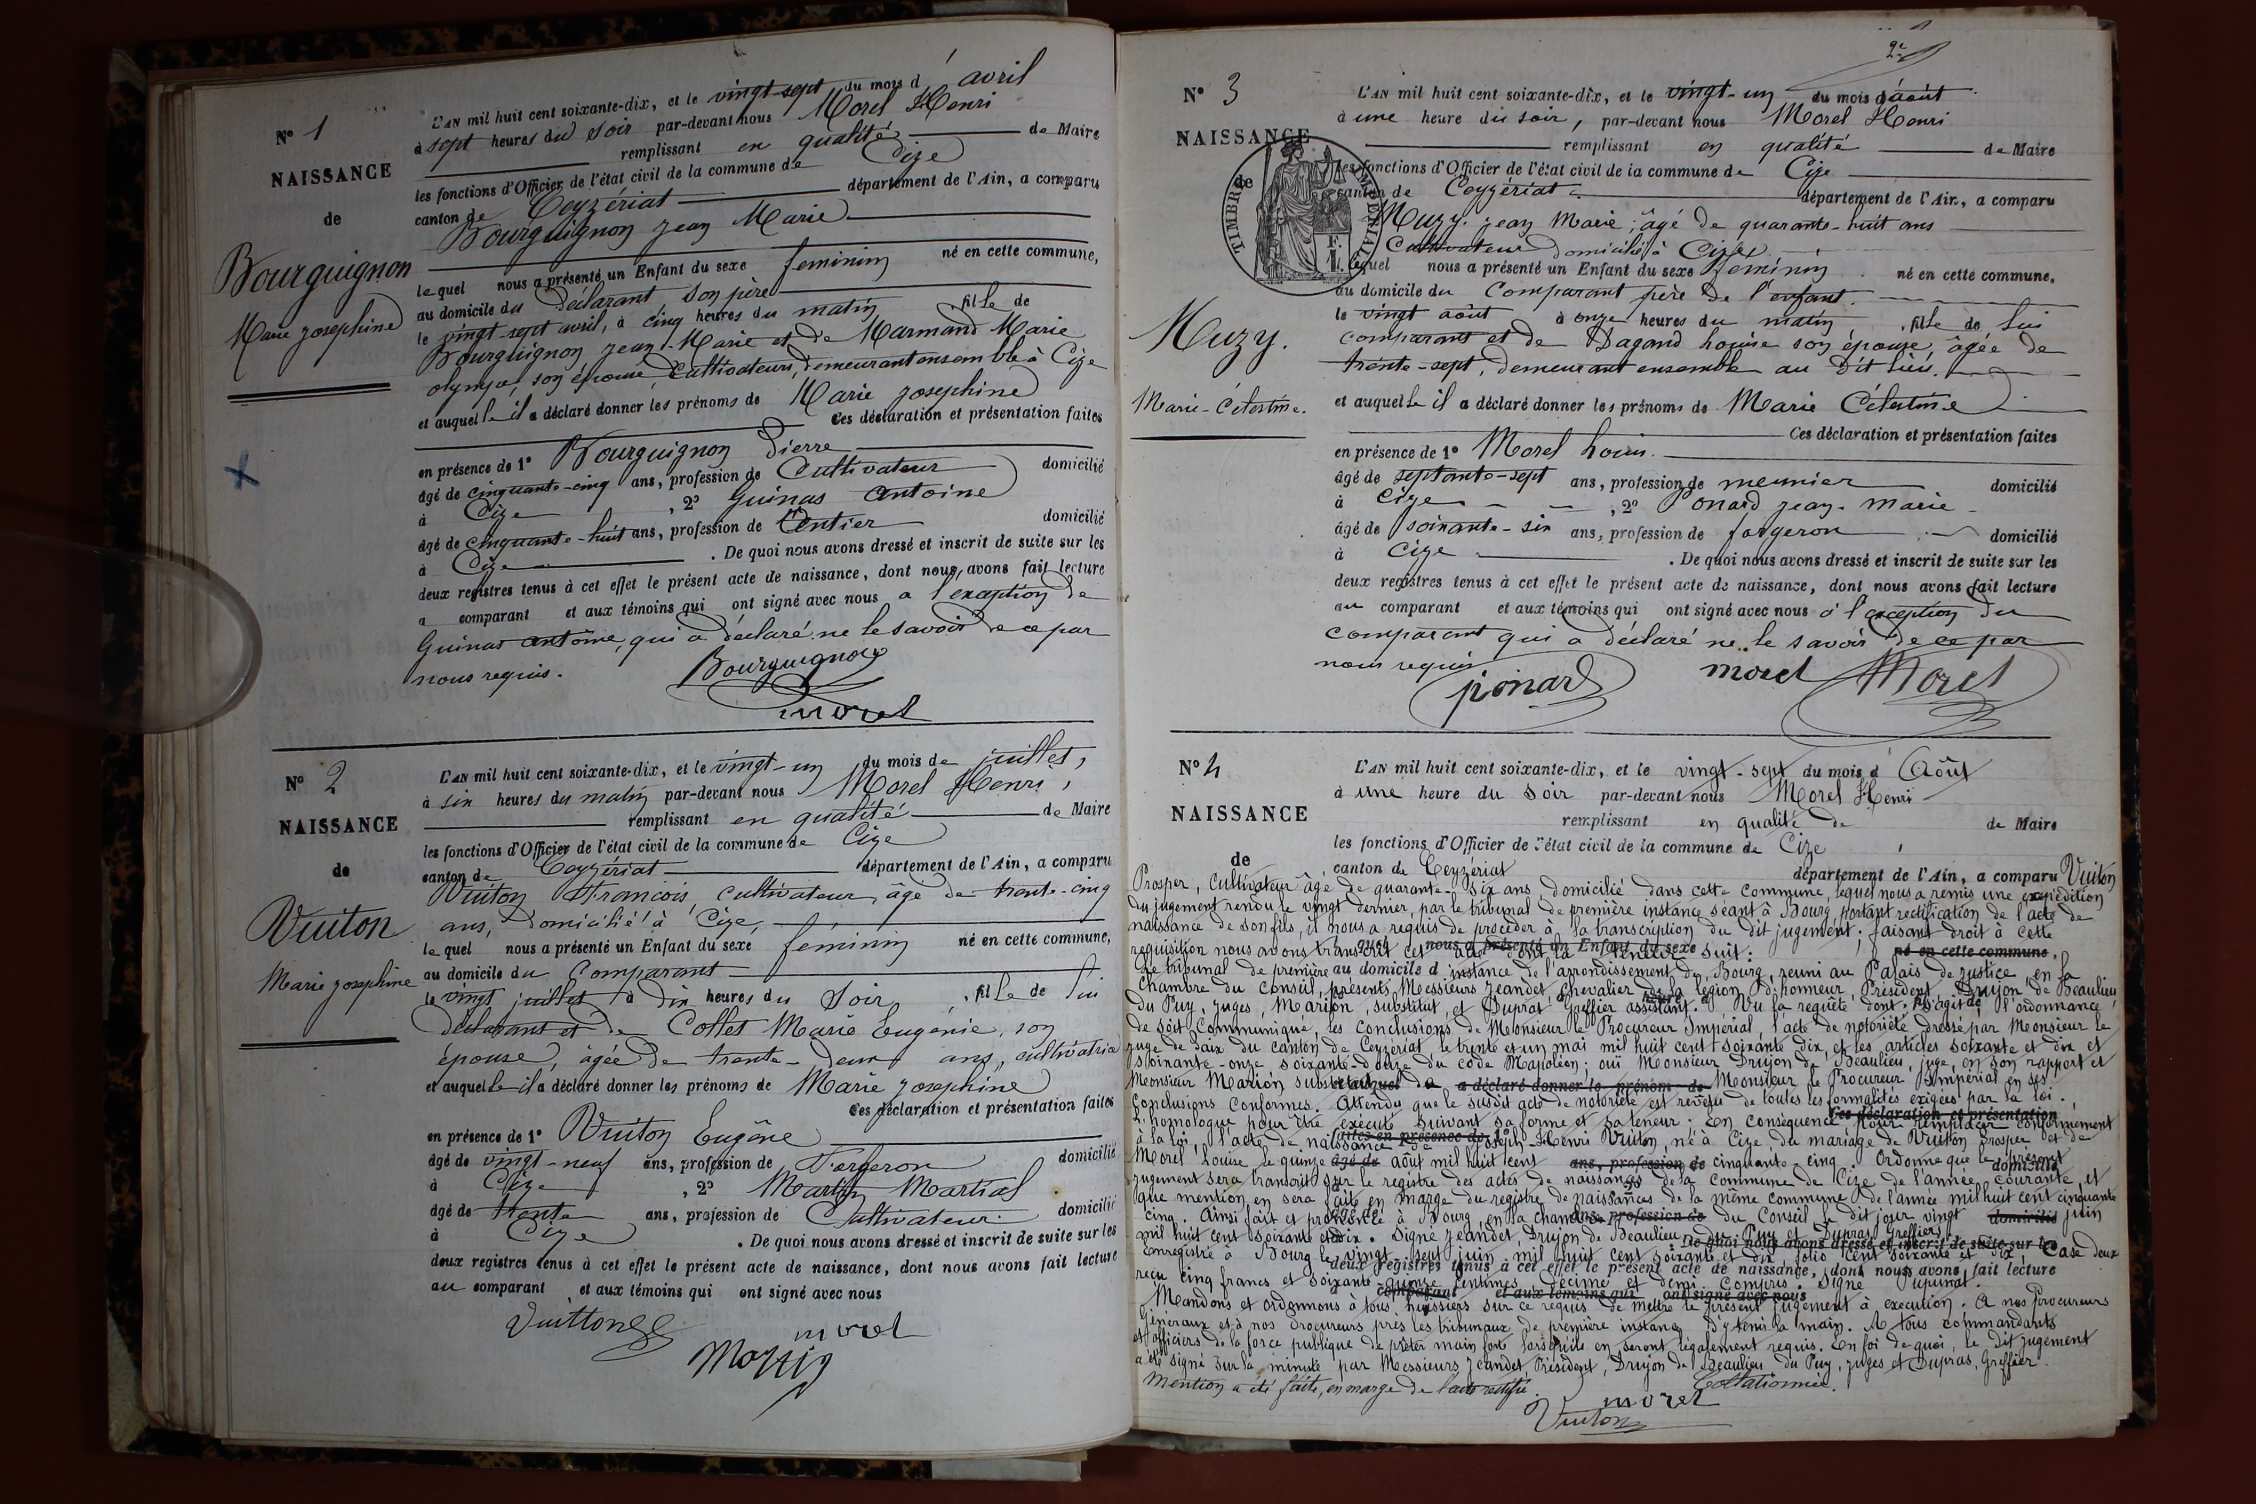 N° 1
NAISSANCE
de
Bourguignon
Marie Josephine
L'AN mil huit cent soixante-dix, et le vingt-sept du mois d'avril
à sept heures du soir par-devant nous Morel Henri
remplissant en qualité de Maire
les fonctions d'Officier de l'état civil de la commune de Cize
canton de Ceyzériat département de l'Ain, a comparu
Bourguignon Jean Marie
le quel nous a présenté un Enfant du sexe feminin né en cette commune,
au domicile du déclarant, son père
le vingt-sept avril, à cinq heures du matin, fille de
Bourguignon Jean-Marie et de Marmand Marie
olympe, son épouse, Cultivateurs, demeurant ensemble à Cize
et auquelle il a déclaré donner les prénoms de Marie Josephine
Ces déclaration et présentation faites
en présence de 1° Bourguignon Pierre
âgé de cinquante-cinq ans, profession de Cultivateur domicilié
à Cize, 2° Guinas Antoine
âgé de cinquante-huit ans, profession de Rentier domicilié
à Cize. De quoi nous avons dressé et inscrit de suite sur les
deux registres tenus à cet effet le présent acte de naissance, dont nous avons fait lecture
a comparant et aux témoins qui ont signé avec nous a l'exception de
Guinas antoine, qui a déclaré ne le savoir de ce par
nous requis.
Bourguignon
morel
N° 2
NAISSANCE
de
Vuiton
Marie Josephine
L'AN mil huit cent soixante-dix, et le vingt-un du mois de juillet,
à six heures du matin par-devant nous Morel Henri,
remplissant en qualité de Maire
les fonctions d'Officier de l'état civil de la commune de Cize
canton de Ceyzériat département de l'Ain, a comparu
Vuiton Francois, cultivateur, âgé de trente-cinq
ans, domicilié à Cize,
le quel nous a présenté un Enfant du sexe féminin né en cette commune,
au domicile du Comparant
le vingt juillet à dix heures du Soir, fille de lui
déclarant et de Collet Marie Eugénie, son
épouse, âgée de trente-deux ans, cultivatrice
et auquelle il a déclaré donner les prénoms de Marie Josephine
Ces déclaration et présentation faites
en présence de 1° Vuiton Eugêne
âgé de vingt-neuf ans, profession de Forgeron domicilié
à Cize, 2° Martin Martial
âgé de trente ans, profession de Cultivateur domicilié
à Cize. De quoi nous avons dressé et inscrit de suite sur les
deux registres tenus à cet effet le présent acte de naissance, dont nous avons fait lecture
au comparant et aux témoins qui ont signé avec nous
morel
2e
N° 3
NAISSANCE
de
TIMBRE IMPERIAL
Muzy.
Marie-Célestine.
L'AN mil huit cent soixante-dix, et le vingt-un du mois d'août
à une heure du soir, par-devant nous Morel Henri
remplissant en qualité de Maire
les fonctions d'Officier de l'état civil de la commune de Cize
canton de Ceyzériat département de l'Ain, a comparu
Muzy Jean Marie, âgé de quarante-huit ans
Cultivateur domicilié à Cize
lequel nous a présenté un Enfant du sexe féminin né en cette commune,
au domicile du Comparant père de l'enfant.
le vingt août à onze heures du matin, fille de lui
comparant et de Dagand Louise son épouse, âgée de
trente-sept, demeurant ensemble au dit lieu.
et auquelle il a déclaré donner les prénoms de Marie Célestine
Ces déclaration et présentation faites
en présence de 1° Morel Louis.
âgé de septante-sept ans, profession de meunier domicilié
à Cize, 2° Ponard Jean-Marie
âgé de soixante-six ans, profession de forgeron domicilié
à Cize. De quoi nous avons dressé et inscrit de suite sur les
deux registres tenus à cet effet le présent acte de naissance, dont nous avons fait lecture
au comparant et aux témoins qui ont signé avec nous à l'exception du
comparant qui a déclaré ne le savoir de ce par
nous requis
ponard morel Morel
N° 4
NAISSANCE
de
L'AN mil huit cent soixante-dix, et le vingt-sept du mois d'Août
à une heure du soir par-devant nous Morel Henri
remplissant en qualité de de Maire
les fonctions d'Officier de l'état civil de la commune de Cize
canton de Ceyzériat département de l'Ain, a comparu Vuiton
Prosper, Cultivateur âgé de quarante-six ans domicilié dans cette commune, lequel nous a remis une expédition
du jugement rendu le vingt dernier, par le tribunal de première instance séant à Bourg, portant rectification de l'acte de
naissance de son fils, il nous a requis de procéder à la transcription du dit jugement; faisant droit à cette
requisition nous avons transcrit cet acte dont la teneur suit:
quel nous a présenté un Enfant du sexe né en cette commune,
Le tribunal de première instance de l'arrondissement de Bourg, reuni au Palais de justice en la
au domicile d
chambre du conseil, présents Messieurs Jeandet, Chevalier de la légion d'honneur, Président, Drujon de Beaulieu
du Puy, juges, Marion, substitut, et Duprat Greffier assistant. Vu la requête dont il s'agit, l'ordonnance
heures d fil de
de soit communiqué, les conclusions de Monsieur le Procureur Impérial, l'acte de notoriété dressé par Monsieur le
juge de Paix du canton de Ceyzériat le trente et un mai mil huit cent soixante dix, et les articles soixante et dix et
soixante-onze soixante-douze du code Napoléon; ouï Monsieur Drujon de Beaulieu, juge, en son rapport et
Monsieur Marion substitut de Monsieur le Procureur Impérial en ses
et auquel a déclaré donner le prénom de
conclusions conformes. Attendu que le susdit acte de notoriété est revêtu de toutes les formalités exigées par la loi.
Ces déclaration et présentation
L'homologue pour être exécuté suivant sa forme et sa teneur. En conséquence pour remplacer conformément
faites en présence de 1°
à la loi, l'acte de naissance de Joseph Henri Vuiton, né à Cize du mariage de Vuiton Prosper et de
Morel Louise, le quinze août mil huit cent cinquante-cinq. Ordonne que le présent
âgé de ans, profession de domicilié
jugement sera transcrit sur le registre des actes de naissance de la commune de Cize de l'année courante et
que mention en sera faite en marge du registre de naissances de la même commune de l'année mil huit cent cinquante
cinq. Ainsi fait et prononcé à Bourg, en la chambre du Conseil le dit jour vingt juin
âgé de ans, profession de domicilié
mil huit cent soixante et dix. Signé Jeandet, Drujon de Beaulieu, du Puy et Dupras, Greffier.
De quoi nous avons dressé et inscrit de suite sur le
Enregistré à Bourg le vingt-sept juin mil huit cent soixante et dix folio cent soixante et dix, Case deux
deux registres tenus à cet effet le présent acte de naissance, dont nous avons fait lecture
reçu cinq francs et soixante quinze centimes decime et demi compris. Signé
comparant et aux témoins qui ont signé avec nous
Mandons et ordonnons à tous huissiers sur ce requis de mettre le présent jugement à execution. A nos Procureurs
généraux et à nos procureurs près les tribunaux de première instance d'y tenir la main. A tous commandants
et officiers de la force publique de prêter main forte lorsqu'ils en seront légalement requis. En foi de quoi, le dit jugement
a été signé sur la minute par Messieurs Jeandet, Président, Drujon de Beaulieu du Puy, juges et Dupras, Greffier.
Collationnée.
Mention a été faite, en marge de l'acte rectifié.
morel
Vuiton